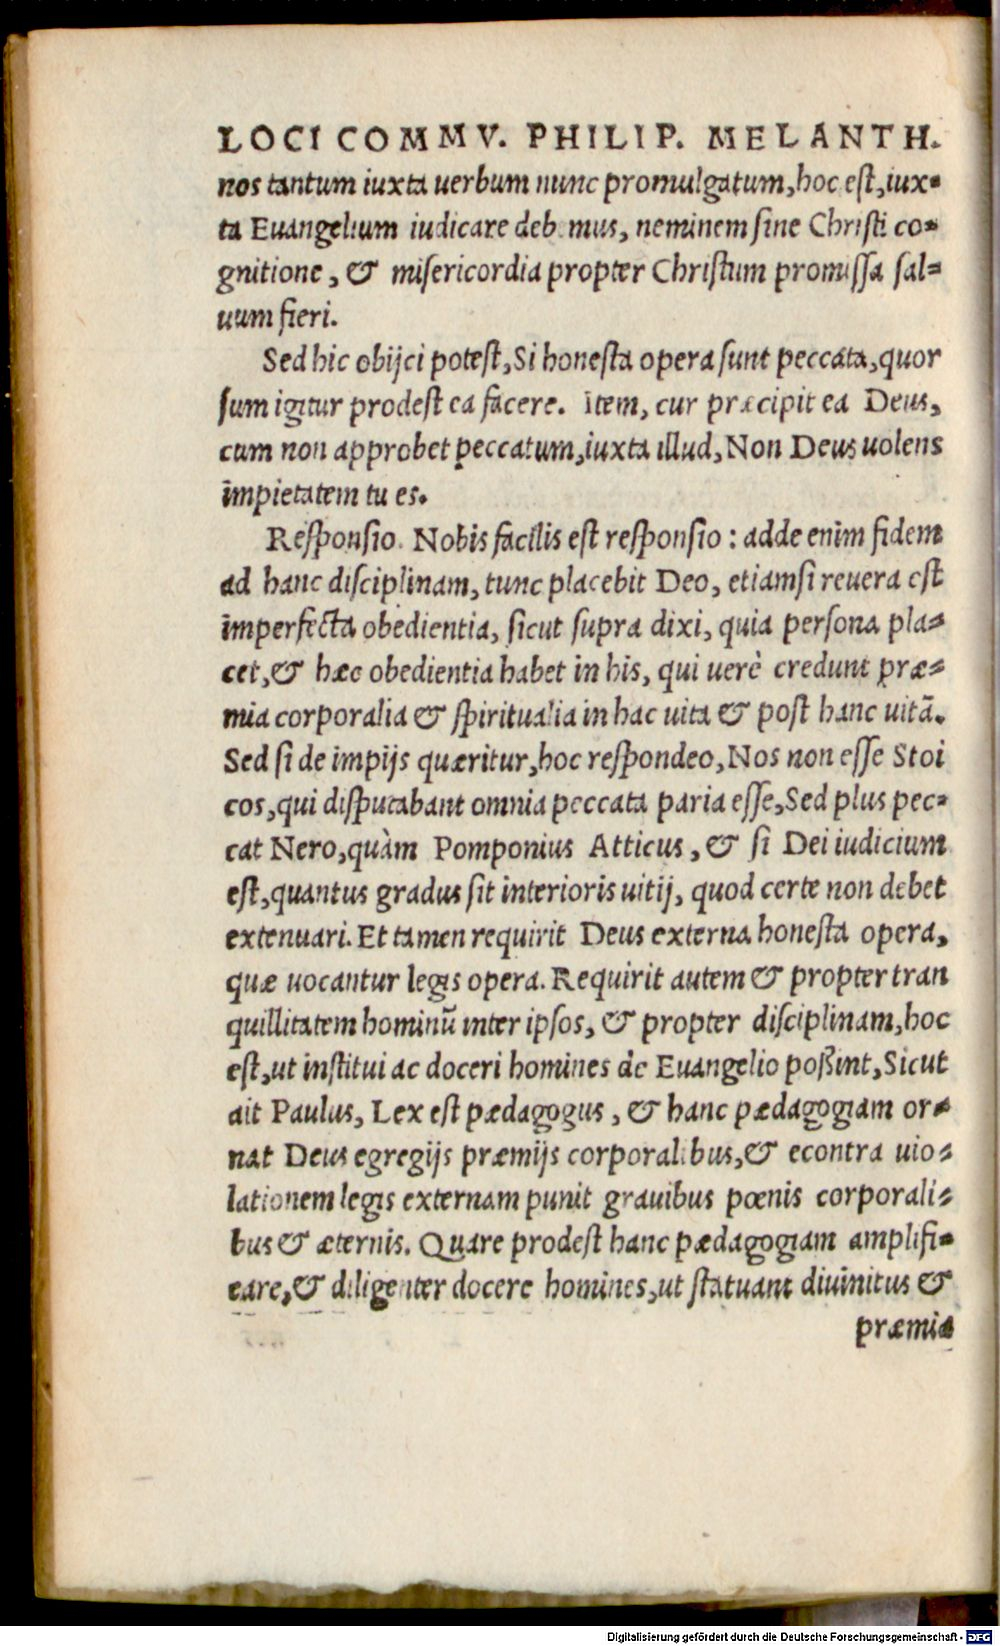 LOCI COMMV. PHILIP. MELANTH.
nos tantum iuxta uerbum nunc promulgatum, hoc est, iux-
ta Euangelium iudicare deb mus, neminem sine Christi co-
gnitione, & misericordia propter Christum promissa sal-
uum fieri.
Sed hic obijci potest, Si honesta opera sunt peccata, quor
sum igitur prodest ea facere. Item, cur præcipit ea Deus,
cum non approbet peccatum, iuxta illud, Non Deus uolens
impietatem tu es.
Responsio. Nobis facilis est responsio: adde enim fidem
ad hanc disciplinam, tunc placebit Deo, etiamsi reuera est
imperfecta obedientia, sicut supra dixi, quia persona pla-
cet, & hæc obedientia habet in his, qui uerè credunt præ-
mia corporalia & spiritualia in hac uita & post hanc uitã.
Sed si de impijs quæritur, hoc respondeo, Nos non esse Stoi
cos, qui disputabant omnia peccata paria esse, Sed plus pec-
cat Nero, quàm Pomponius Atticus, & si Dei iudicium
est, quantus gradus sit interioris uitij, quod certe non debet
extenuari. Et tamen requirit Deus externa honesta opera,
quæ uocantur legis opera. Requirit autem & propter tran
quillitatem hominũ inter ipsos, & propter disciplinam, hoc
est, ut institui ac doceri homines de Euangelio poßint, Sicut
ait Paulus, Lex est pædagogus, & hanc pædagogiam or-
nat Deus egregijs præmijs corporalibus, & econtra uio-
lationem legis externam punit grauibus pœnis corporali-
bus & æternis. Quare prodest hanc pædagogiam amplifi-
care, & diligenter docere homines, ut statuant diuinitus &
præmia
Digitalisierung gefördert durch die Deutsche Forschungsgemeinschaft - DFG